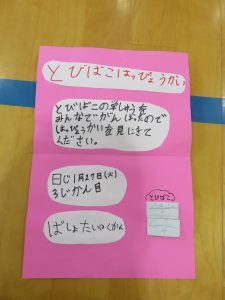 とびばこはっぴょうかい
とびばこの学しゅうを
みんなでがんばったので
はっぴょうかいを見にきて
ください。
日じ1月27日(火)
3じかん目
ばしょたいいくかん
とびばこ